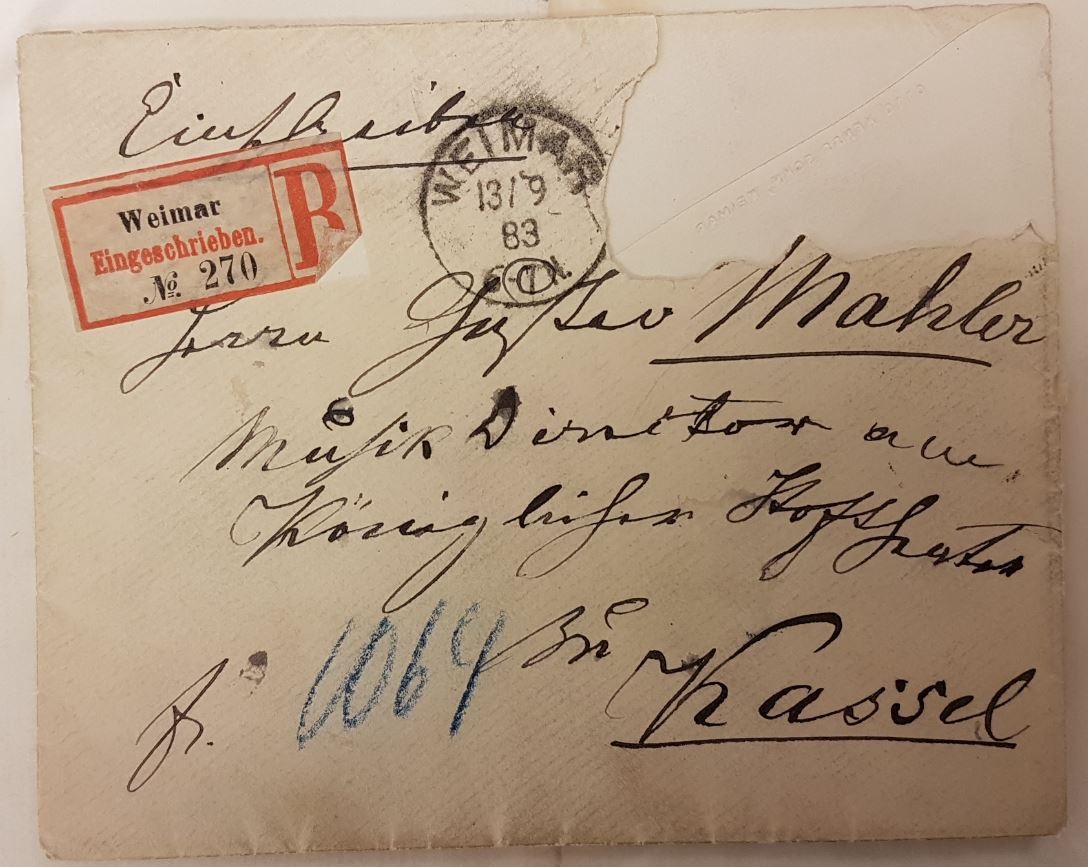 Einschreiben
WEIMAR
13/9
83
Weimar
Eingeschrieben.
№ 270
R
Herrn Gustav Mahler
Musik Director am
Königlichen Hoftheater
zu Kassel
1064
fr.